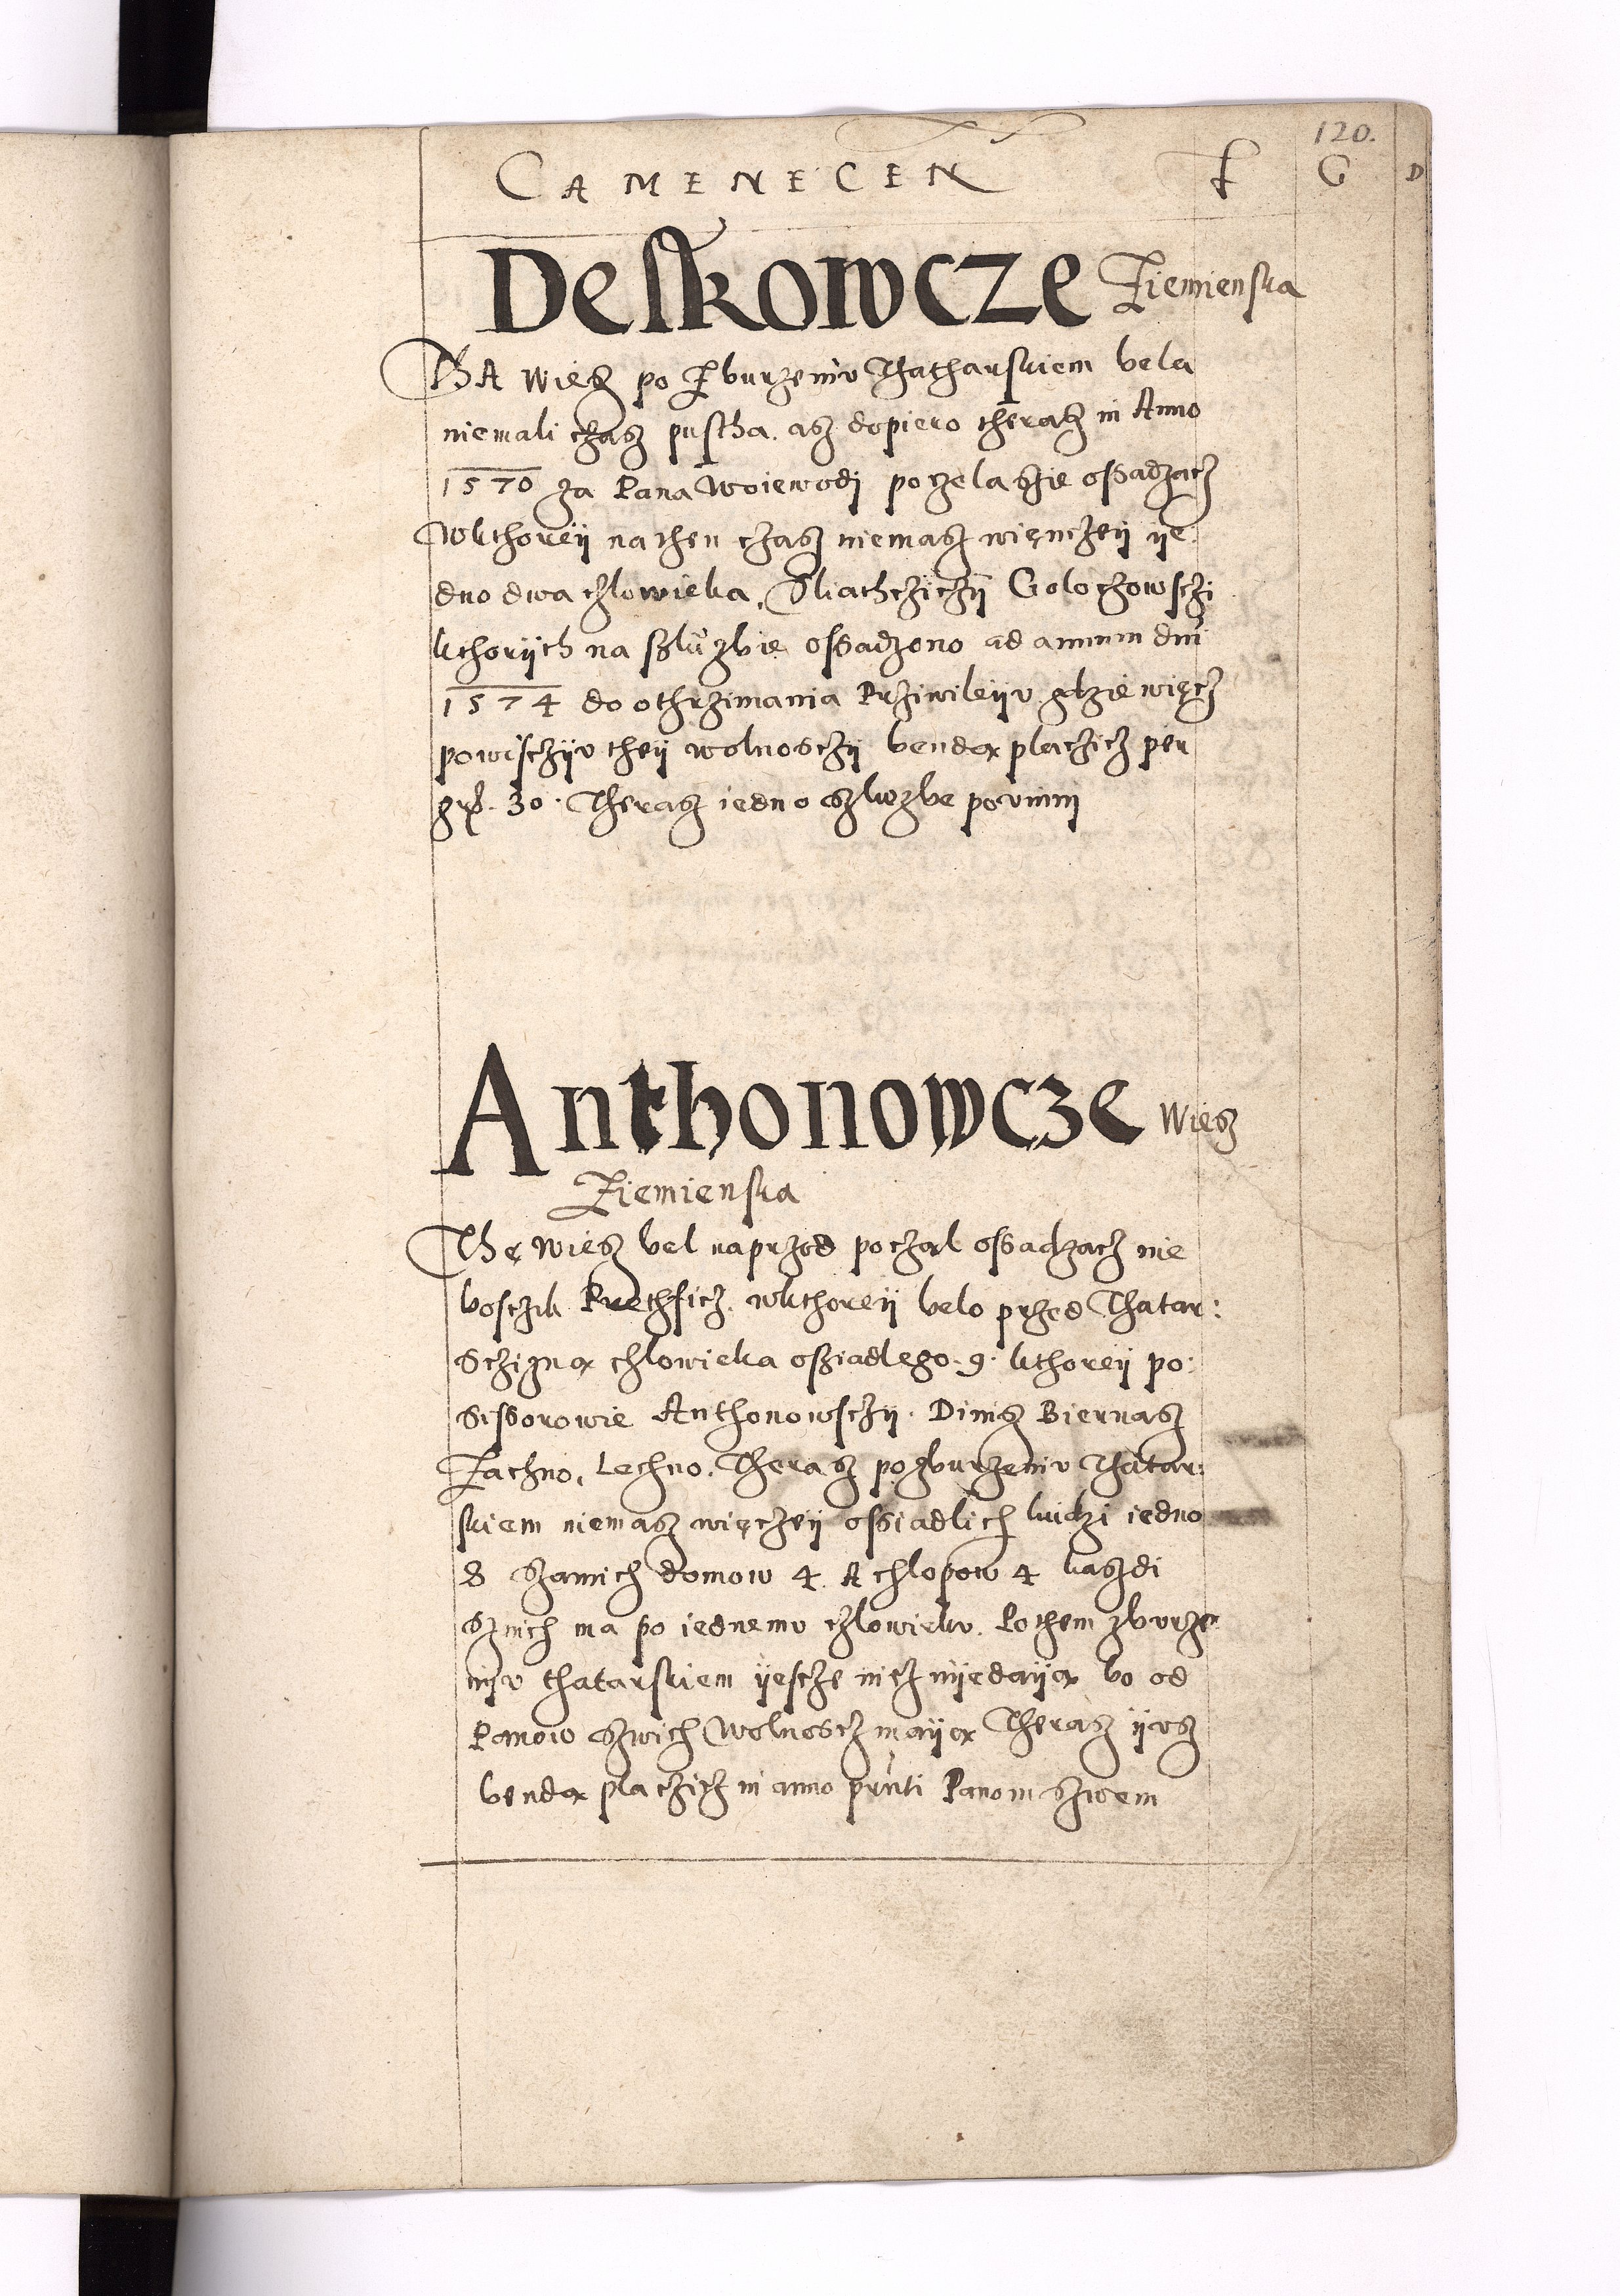 120.
CAMENECEN F G D
Deskowcze Ziemienska
Tha wiesz po Zburzeniu Thatharskiem bela
niemali czasz pustha. asz dopiero therasz in Anno
1570 za Pana Woiewodi poczela szie ossadzacz
Wkthoreÿ na then czasz niemasz więnczeÿ ÿe:
dno dwa człowieka. Sliachcziczÿ Golochowsczi
kthorÿch na szluzbie ossadzono ad annum dni
1574 do othrzimania Prziwileÿu gdzie więcz
powisczÿu theÿ wolnosczÿ bendą placzicz per
grß. 30. Therasz iedno szluzbe powinni
Anthonowcze Wiesz
Ziemienska
Thę wiesz bel naprzod poczal ossadzacz nie
bosczik Krethficz. wkthoreÿ belo przed Thatar:
sczizną chlowieka osziadlego. 9. kthoreÿ po:
sessorowie Anthonowsczÿ. Dinisz Biernasz
Zachno, Lechno. Therasz po zburzeniu Thatar:
skiem niemasz więczeÿ ossiadlich luidzi iedno
8 szamich domow 4. A chlopow 4 kaszdi
sznich ma po iednemu człowieku. Po them zburze
niu thatarskiem ÿescze nicz niedaÿą bo od
Panow szwich Wolnoscz maÿą Therasz ÿusz
bendą placzicz in anno prnti Panom szwem